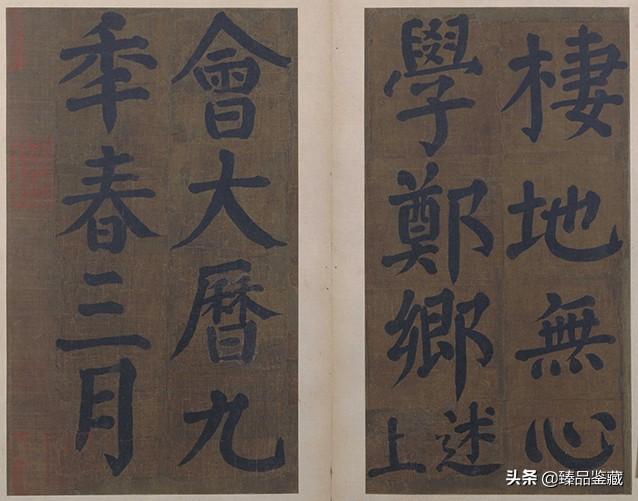 棲地無心
學鄭鄉述上
會大曆九
年春三月
头条 @臻品鉴藏